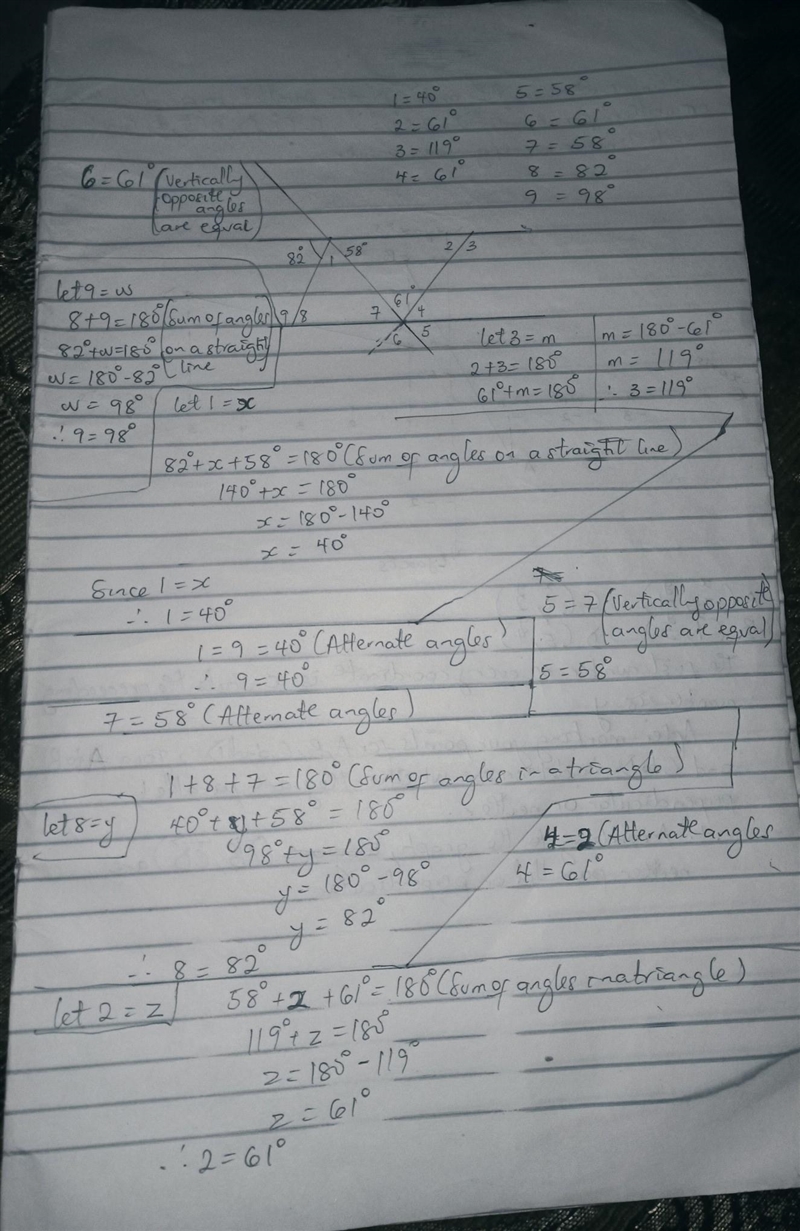 1 = 40° 5 = 58°
2 = 61° 6 = 61°
3 = 119° 7 = 58°
4 = 61° 8 = 82°
9 = 98°
6 = 61° (Vertically
opposite
angles
are equal)
82° 1 58° 2 3
9 8 7 61° 4
6 5
let 9 = w
8 + 9 = 180° (Sum of angles
82° + w = 180° on a straight
w = 180° - 82° line
w = 98°
∴ 9 = 98°
let 3 = m
2 + 3 = 180°
61° + m = 180°
m = 180° - 61°
m = 119°
∴ 3 = 119°
let 1 = x
82° + x + 58° = 180° (Sum of angles on a straight line)
140° + x = 180°
x = 180° - 140°
x = 40°
Since 1 = x
∴ 1 = 40°
1 = 9 = 40° (Alternate angles)
∴ 9 = 40°
7 = 58° (Alternate angles)
5 = 7 (Vertically opposite
angles are equal)
5 = 58°
1 + 8 + 7 = 180° (Sum of angles in a triangle)
let 8 = y
40° + y + 58° = 180°
98° + y = 180°
y = 180° - 98°
y = 82°
∴ 8 = 82°
4 = 2 (Alternate angles
4 = 61°
let 2 = z
58° + z + 61° = 180° (Sum of angles in a triangle)
119° + z = 180°
z = 180° - 119°
z = 61°
∴ 2 = 61°